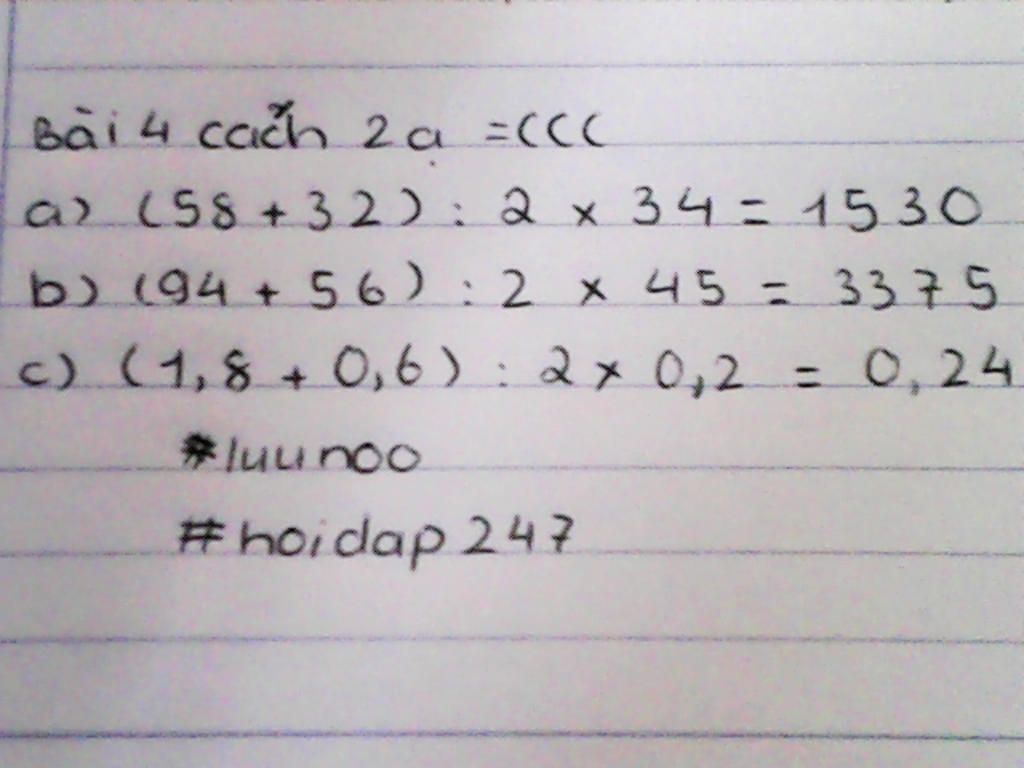 Bài 4 cách 2 ạ =(((
a) (58 + 32) : 2 × 34 = 1530
b) (94 + 56) : 2 × 45 = 3375
c) (1,8 + 0,6) : 2 × 0,2 = 0,24
#luunoo
#hoidap247